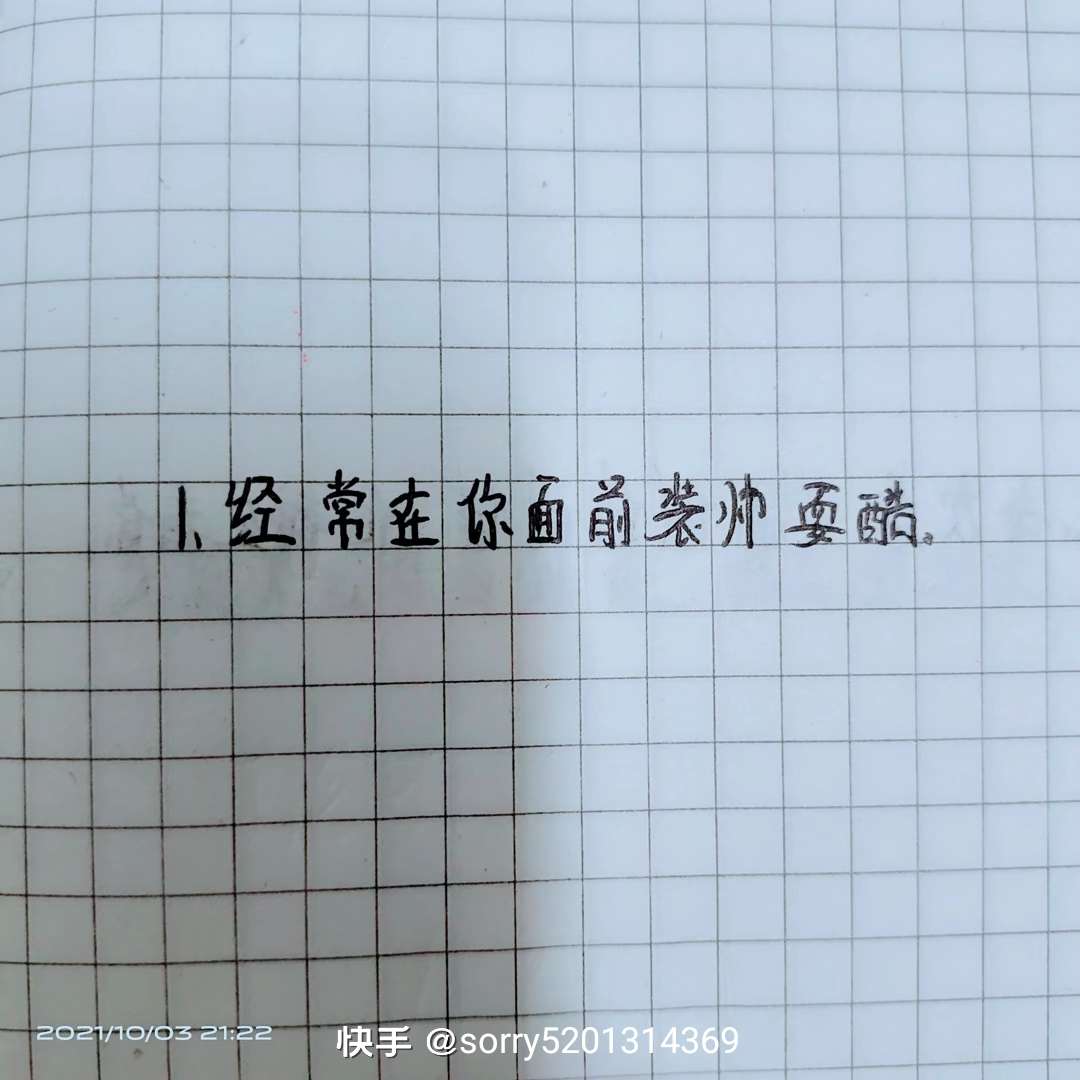 1.经常在你面前装帅耍酷。
2021/10/03 21:22
快手 @sorry5201314369